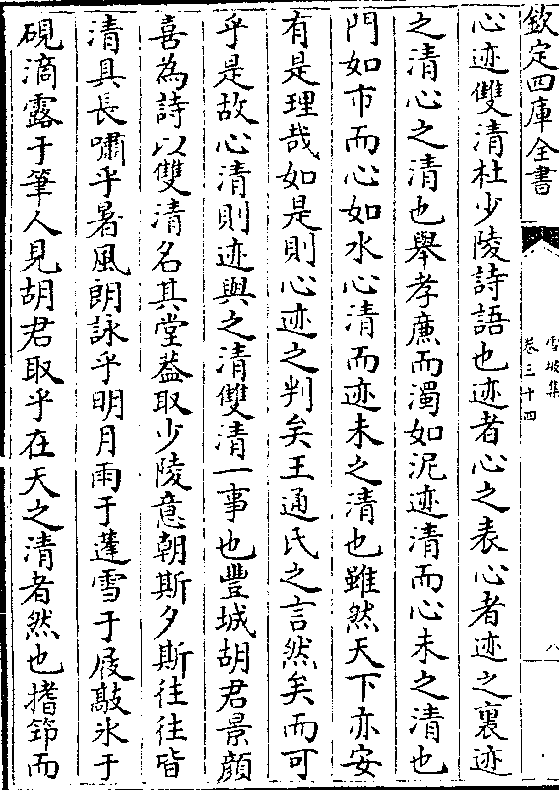 欽定四庫全書
雪坡集
卷三十四
八
心迹雙清杜少陵詩語也迹者心之表心者迹之裏迹
之清心之清也舉孝廉而濁如泥迹清而心未之清也
門如市而心如水心清而迹未之清也雖然天下亦安
有是理哉如是則心迹之判矣王通氏之言然矣而可
乎是故心清則迹與之清雙清一事也豐城胡君景顏
喜為詩以雙清名其堂葢取少陵意朝斯夕斯往往皆
清具長嘯乎暑風朗詠乎明月雨于蓬雪于屐敲氷于
硯滴露于筆人見胡君取乎在天之清者然也揩筇而